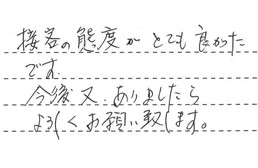 接客の態度がとても良かった
です.
今後又、ありましたら
よろしくお願い致します。